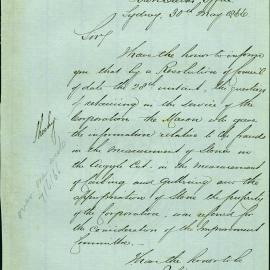 Sydney, 30th May 1866
Sir,
I have the honor to inform
you that by a Resolution of Council
of date the 28th instant, the question
of retaining in the service of the
Corporation the Mason who gave
the information relative to the frauds
in the measurement of Stone in
the Argyle Cut, in the measurement
of Kerbing and Guttering and the
appropriation of Stone the property
of the Corporation, was referred for
the consideration of the Improvement
Committee.
I have the honor to be